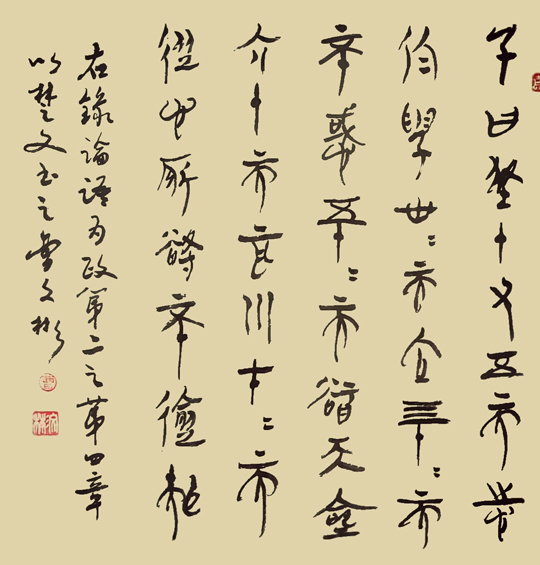 子曰吾十又五而志
於學卅而立四十而
不惑五十而智天命
六十而耳川七十而
從心所欲不逾矩
右錄論語為政第二之第四章
以楚文书之曾文彬